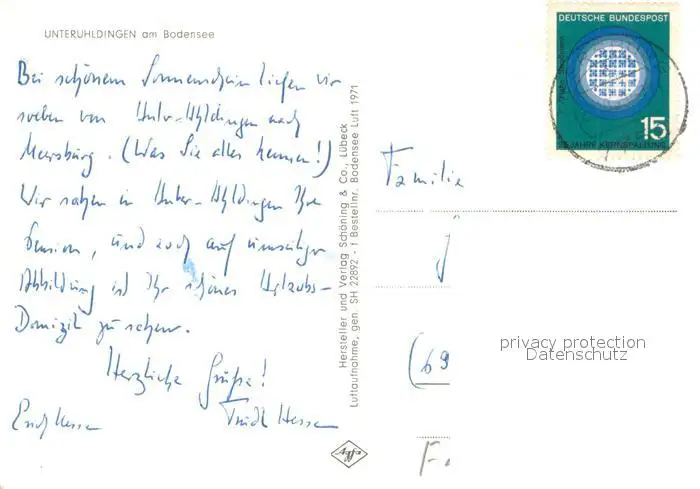 UNTERUHLDINGEN am Bodensee
Bei schönem Sonnenschein liefen wir
soeben von Unter-Uhldingen nach
Meersburg. (Was Sie alles kennen!)
Wir sahen in Unter-Uhldingen Ihre
Pension, und auch auf umseitiger
Abbildung ist Ihr schönes Urlaubs-
Domizil zu sehen.
Herzliche Grüße!
Trudl Hessen
Hersteller und Verlag Schöning & Co., Lübeck
Luftaufnahme, gen. SH 22892 - 1 Bestellnr. Bodensee Luft 1971
Agfa
DEUTSCHE BUNDESPOST
15
JAHRE KERNSPALTUNG
Familie
J
(69
F.
privacy protection
Datenschutz